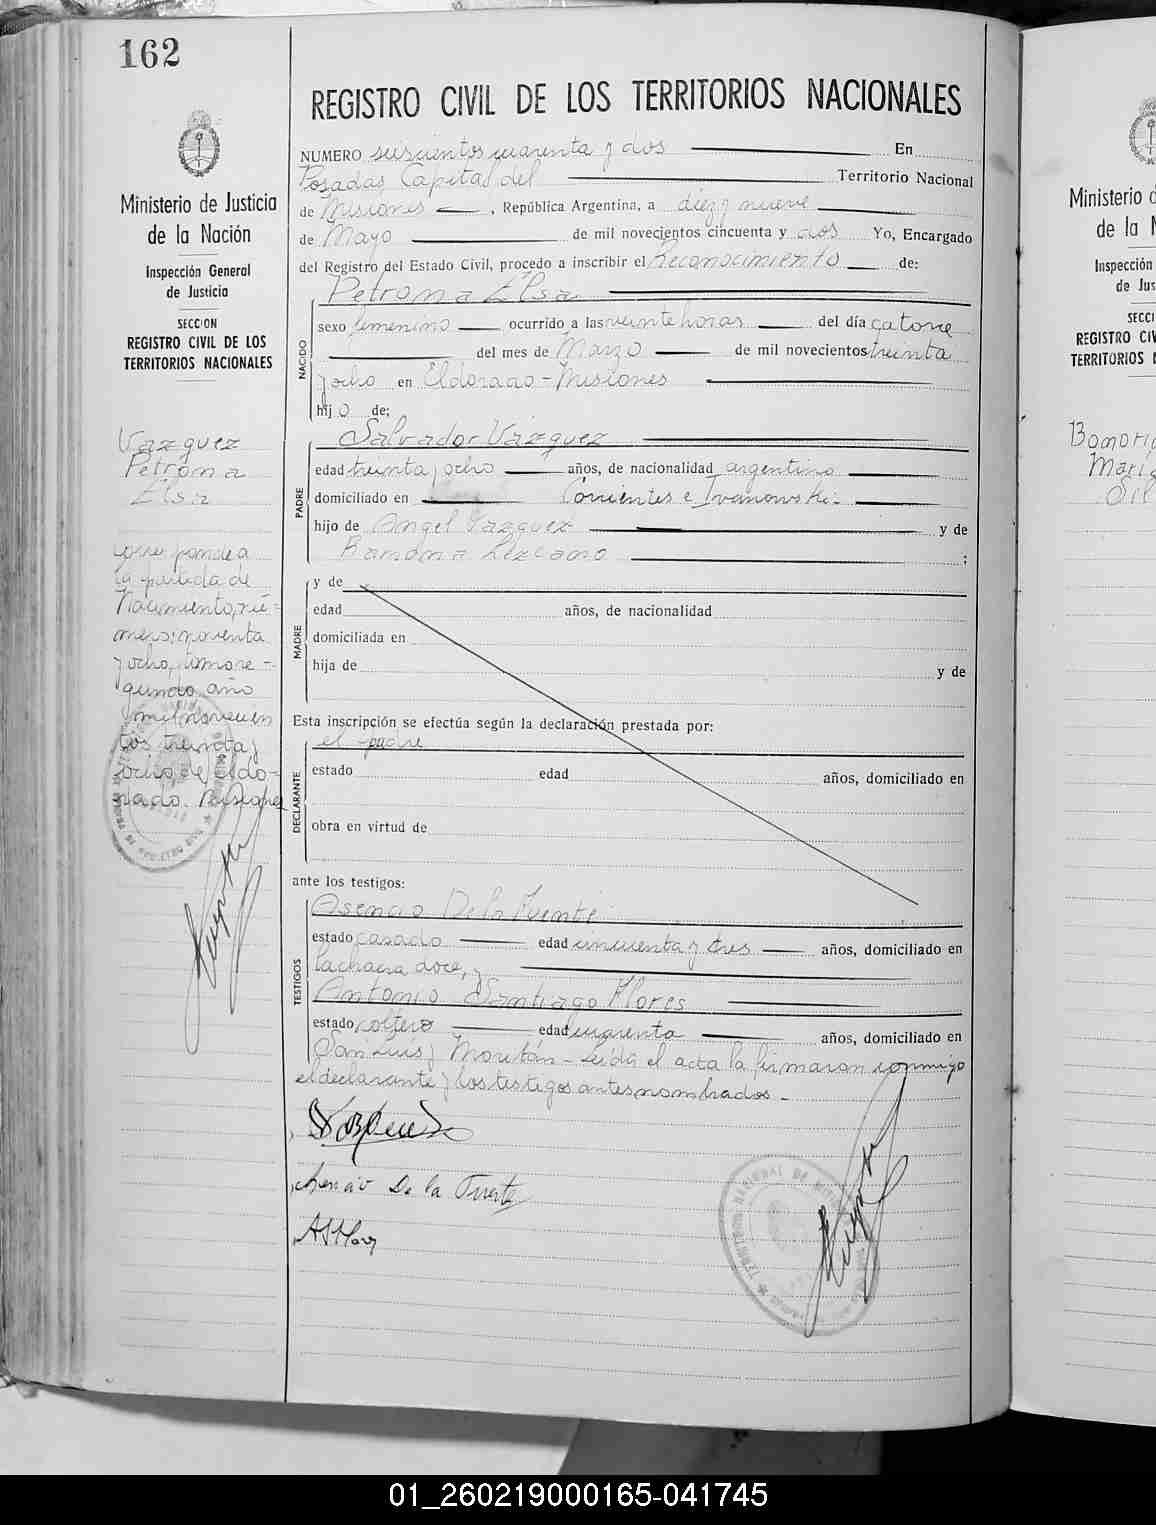 162
Ministerio de Justicia
de la Nación
Inspección General
de Justicia
SECCION
REGISTRO CIVIL DE LOS
TERRITORIOS NACIONALES
Vazquez
Petrona
Elsa
que pande a
la partida de
Nacimiento, nú-
mero: noventa
y ocho, tomo se-
gundo, año
mil novecien
tos treinta y
ocho, de Eldo-
rado. Misiones
REGISTRO CIVIL DE LOS TERRITORIOS NACIONALES
NUMERO suscientos cuarenta y dos En
Posadas Capital del Territorio Nacional
de Misiones, República Argentina, a diez y nueve
de Mayo de mil novecientos cincuenta y dos Yo, Encargado
del Registro del Estado Civil, procedo a inscribir el Reconocimiento de:
NACIDO
Petrona Elsa
sexo femenino ocurrido a las veinte horas del día catorce
del mes de Marzo de mil novecientos treinta
y ocho en Eldorado - Misiones
hij o de;
PADRE
Salvador Vázquez
edad treinta y ocho años, de nacionalidad argentina
domiciliado en Corrientes e Ivanowski.
hijo de Angel Vazquez y de
Ramona Lezcano ;
MADRE
y de
edad años, de nacionalidad
domiciliada en
hija de y de
Esta inscripción se efectúa según la declaración prestada por:
DECLARANTE
el padre
estado edad años, domiciliado en
obra en virtud de
ante los testigos:
TESTIGOS
Asencio De la Fuente
estado casado edad cincuenta y tres años, domiciliado en
la chacra doce, y
Antonio Santiago Flores
estado soltero edad cuarenta años, domiciliado en
San Luis y Moritán - Leída el acta la firmaron conmigo
el declarante y los testigos antes nombrados. -
S. Vazquez
Asencio De la Fuente
ASFlores
TERRITORIO NACIONAL DE MISIONES
Ministerio d
de la N
Inspección
de Jus
SECCI
REGISTRO CIV
TERRITORIOS N
Maria
01_260219000165-041745